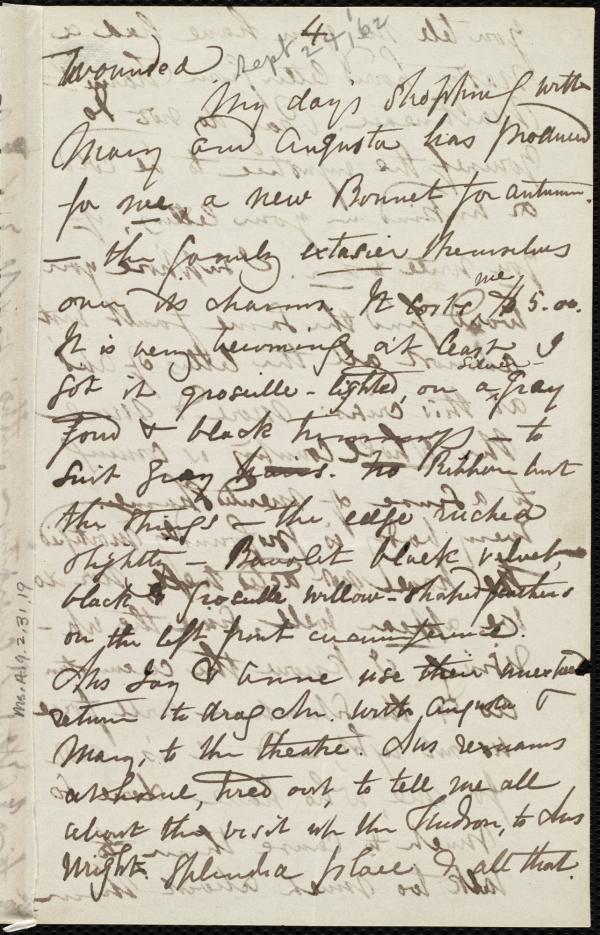 4
Sept 24, '62
Wounded
My day's shopping with
Mary and Augusta has produced
for me, a new Bonnet for autumn.
— the family extasier themselves
over its charms. It cost me $5.00.
It is very becoming, at least I
got it groseille-lighted, on a silver-gray
fond & black trimmings — to
suit gray hairs. No Ribbon but
the strings & the edge ruched
slightly — Bavolet black velvet,
black & groseille willow-shaped feathers
on the left front circumference.
Sus Jay & Anne use their unexpected
return to drag Mr. with Augusta &
Mary, to the theatre. Sus remains
at home, tired out, to tell me all
about the visit up the Hudson, to Sus
Wright. Splendid place & all that.
Ms.A.9.2.31.19